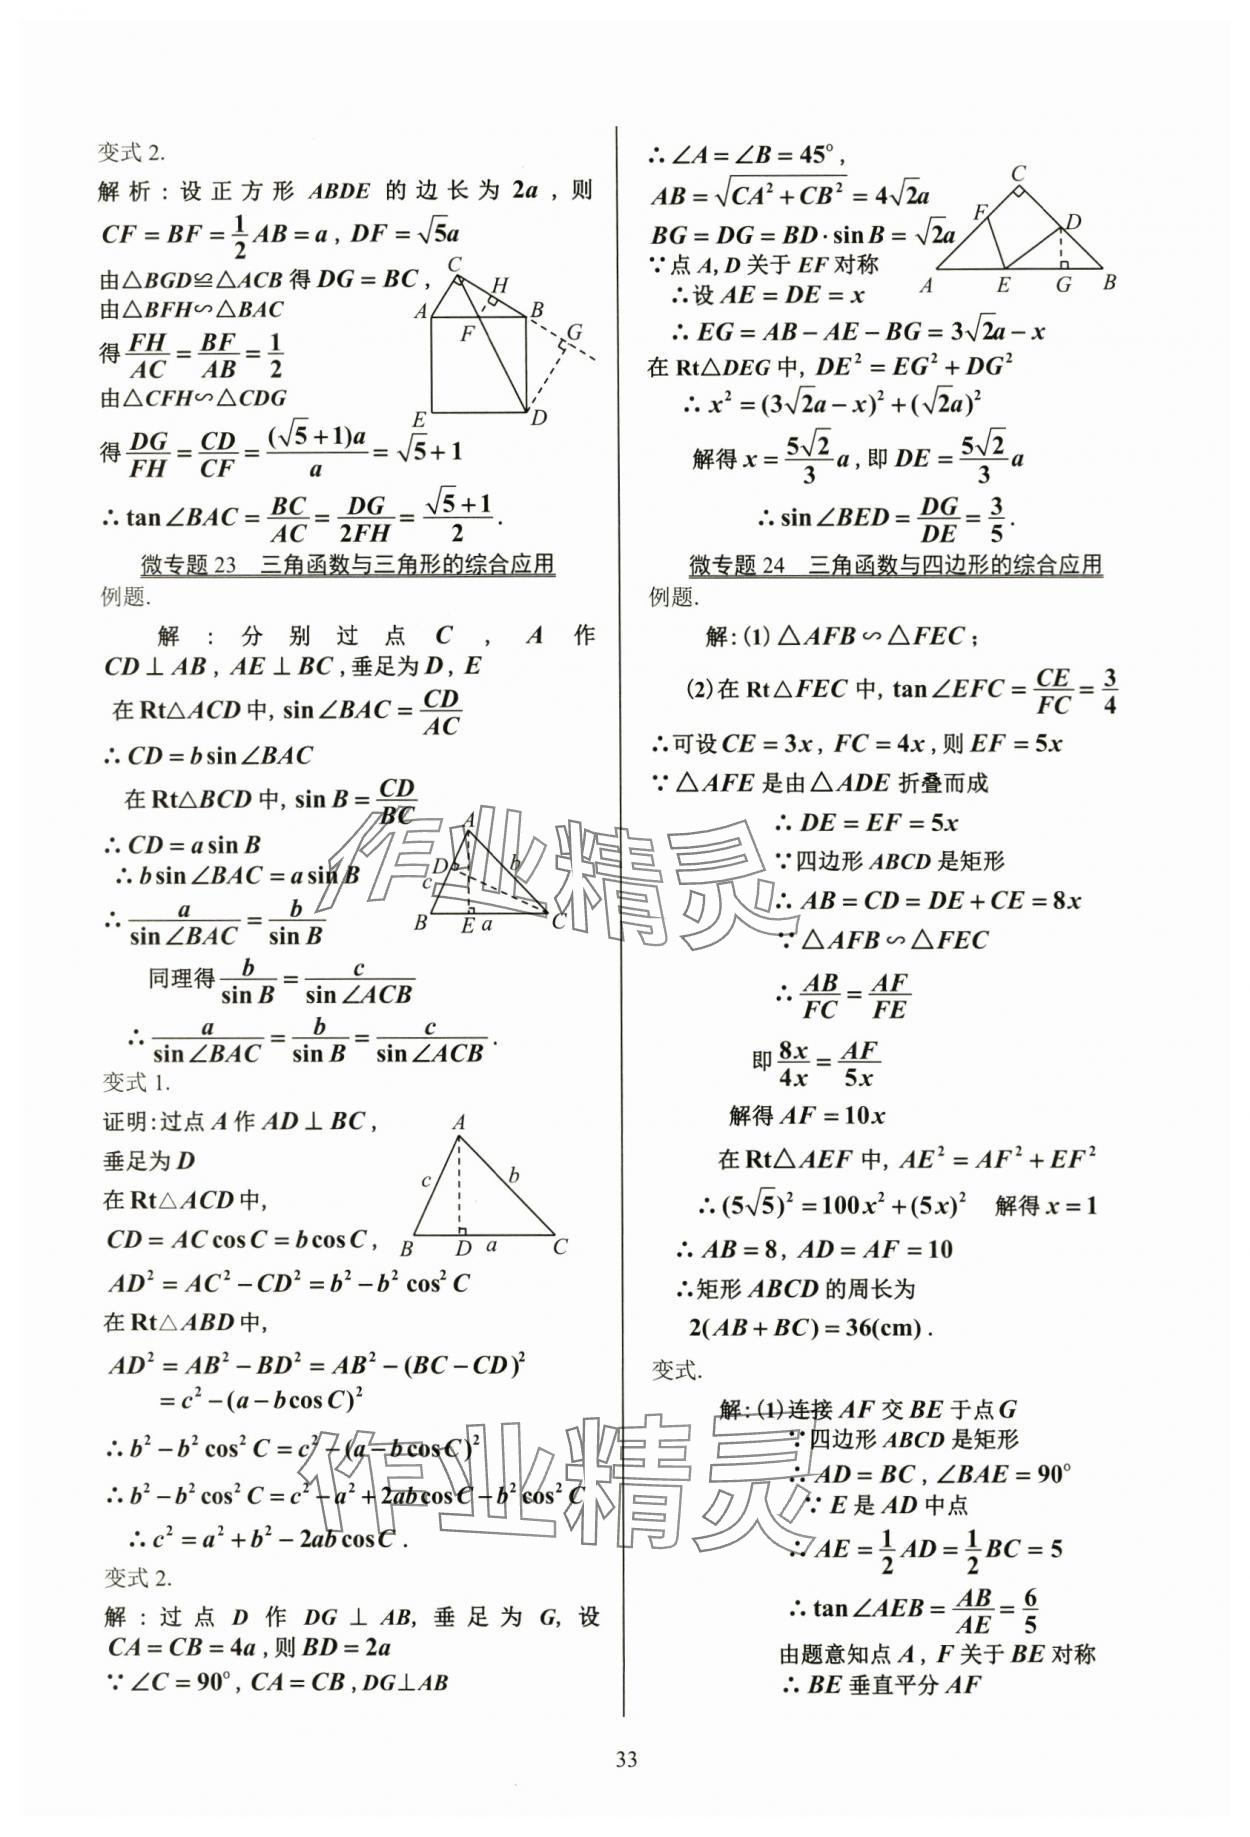 变式 2.
解析:设正方形 ABDE 的边长为 2a,则
CF = BF = 1/2 AB = a, DF = √5a
由△BGD≌△ACB 得 DG = BC,
由△BFH∽△BAC
得 FH/AC = BF/AB = 1/2
由△CFH∽△CDG
得 DG/FH = CD/CF = (√5+1)a/a = √5+1
∴ tan∠BAC = BC/AC = DG/2FH = (√5+1)/2.
C
H
A
F
B
G
E
D
微专题 23 三角函数与三角形的综合应用
例题.
解:分别过点 C,A 作
CD⊥AB, AE⊥BC,垂足为 D, E
在 Rt△ACD 中, sin∠BAC = CD/AC
∴ CD = b sin∠BAC
在 Rt△BCD 中, sin B = CD/BC
∴ CD = a sin B
∴ b sin∠BAC = a sin B
∴ a/sin∠BAC = b/sin B
同理得 b/sin B = c/sin∠ACB
∴ a/sin∠BAC = b/sin B = c/sin∠ACB.
A
D
b
c
B
E a
C
变式 1.
证明:过点 A 作 AD⊥BC,
垂足为 D
在 Rt△ACD 中,
CD = AC cos C = b cos C,
AD² = AC² − CD² = b² − b² cos² C
在 Rt△ABD 中,
AD² = AB² − BD² = AB² − (BC − CD)²
= c² − (a − b cos C)²
∴ b² − b² cos² C = c² − (a − b cos C)²
∴ b² − b² cos² C = c² − a² + 2ab cos C − b² cos² C
∴ c² = a² + b² − 2ab cos C.
A
c
b
B
D a
C
变式 2.
解:过点 D 作 DG⊥AB,垂足为 G,设
CA = CB = 4a,则 BD = 2a
∵ ∠C = 90°, CA = CB, DG⊥AB
∴ ∠A = ∠B = 45°,
AB = √(CA² + CB²) = 4√2a
BG = DG = BD·sin B = √2a
∵点 A, D 关于 EF 对称
∴设 AE = DE = x
∴ EG = AB − AE − BG = 3√2a − x
在 Rt△DEG 中, DE² = EG² + DG²
∴ x² = (3√2a − x)² + (√2a)²
解得 x = 5√2/3 a,即 DE = 5√2/3 a
∴ sin∠BED = DG/DE = 3/5.
C
F
D
A
E
G
B
微专题 24 三角函数与四边形的综合应用
例题.
解:(1) △AFB∽△FEC;
(2)在 Rt△FEC 中, tan∠EFC = CE/FC = 3/4
∴可设 CE = 3x, FC = 4x,则 EF = 5x
∵ △AFE 是由△ADE 折叠而成
∴ DE = EF = 5x
∵四边形 ABCD 是矩形
∴ AB = CD = DE + CE = 8x
∵ △AFB∽△FEC
∴ AB/FC = AF/FE
即 8x/4x = AF/5x
解得 AF = 10x
在 Rt△AEF 中, AE² = AF² + EF²
∴ (5√5)² = 100x² + (5x)² 解得 x = 1
∴ AB = 8, AD = AF = 10
∴矩形 ABCD 的周长为
2(AB + BC) = 36(cm).
变式.
解:(1)连接 AF 交 BE 于点 G
∵四边形 ABCD 是矩形
∴ AD = BC, ∠BAE = 90°
∵ E 是 AD 中点
∴ AE = 1/2 AD = 1/2 BC = 5
∴ tan∠AEB = AB/AE = 6/5
由题意知点 A, F 关于 BE 对称
∴ BE 垂直平分 AF
作业精灵
作业精灵
33